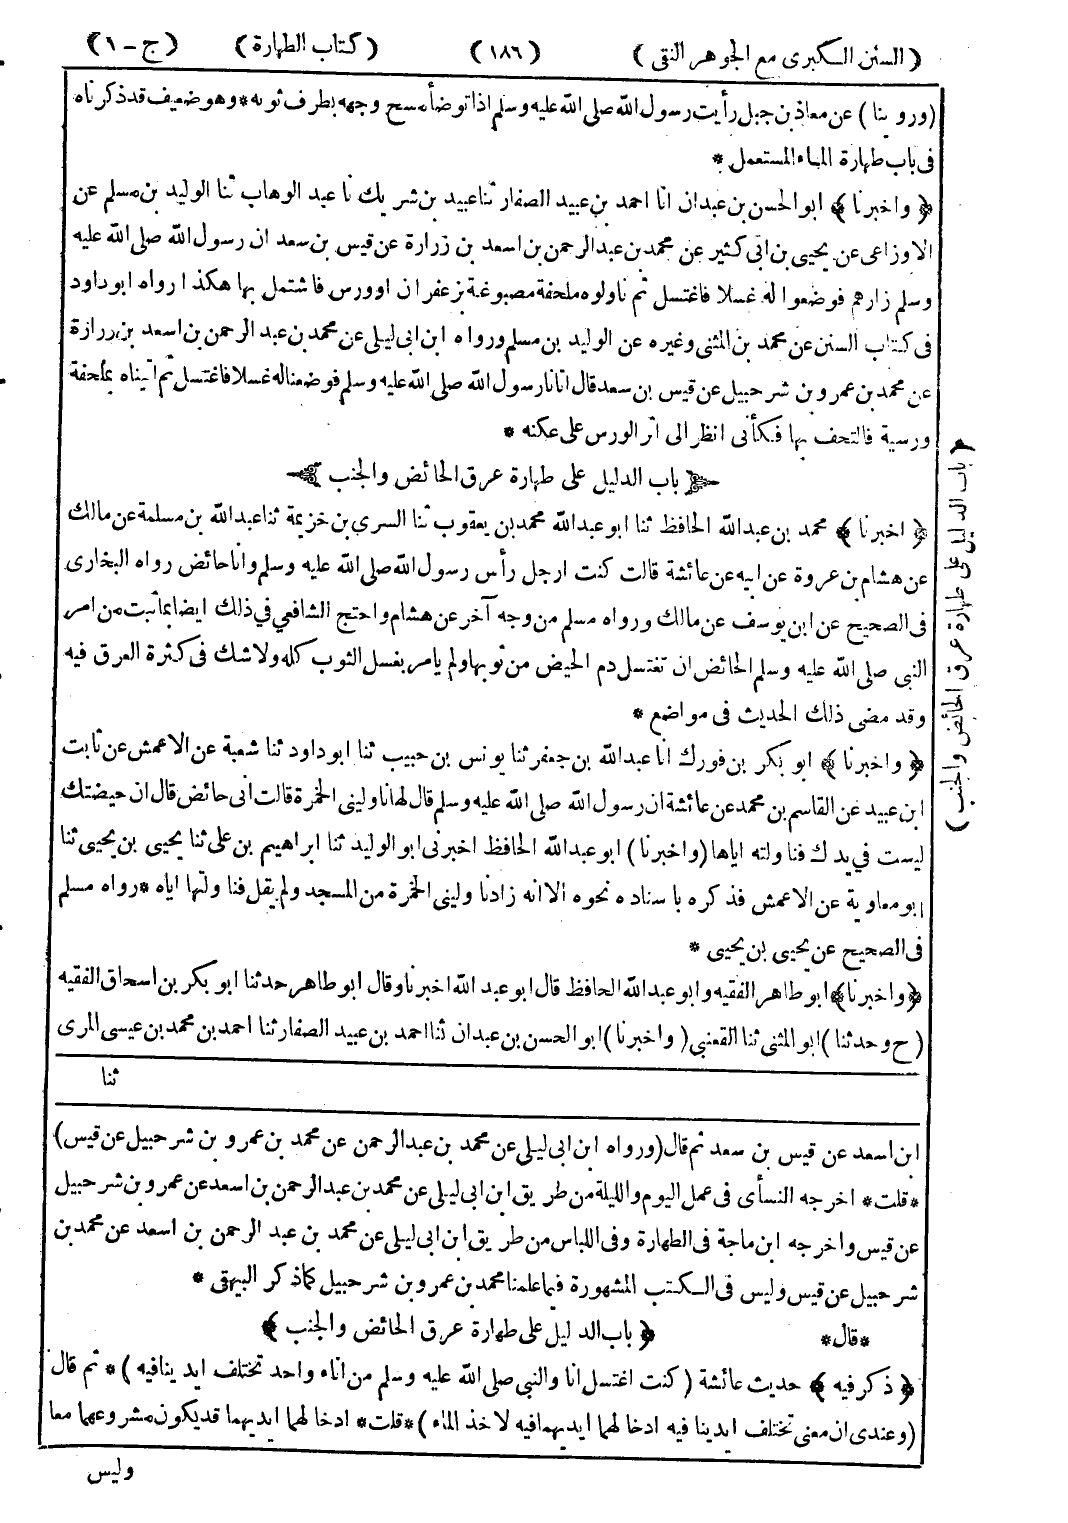 ( السنن الكبرى مع الجوهر النقى ) ( ١٨٦ ) ( كتاب الطهارة ) ( ج - ١ )
( وروينا ) عن معاذ بن جبل رأيت رسول الله صلى الله عليه وسلم اذا توضأ مسح وجهه بطرف ثوبه * وهو ضعيف قد ذكرناه
فى باب طهارة الماء المستعمل *
﴿ واخبرنا ﴾ ابو الحسن بن عبدان انا احمد بن عبيد الصفار ثنا عبيد بن شريك نا عبد الوهاب ثنا الوليد بن مسلم عن
الاوزاعى عن يحيى بن ابى كثير عن محمد بن عبد الرحمن بن اسعد بن زرارة عن قيس بن سعد ان رسول الله صلى الله عليه
وسلم زارهم فوضعوا له غسلا فاغتسل ثم ناولوه ملحفة مصبوغة بزعفران اوورس فاشتمل بها هكذا رواه ابو داود
فى كتاب السنن عن محمد بن المثنى وغيره عن الوليد بن مسلم ورواه ابن ابى ليلى عن محمد بن عبد الرحمن بن اسعد بن زرارة
عن محمد بن عمرو بن شرحبيل عن قيس بن سعد قال اتانا رسول الله صلى الله عليه وسلم فوضعنا له غسلا فاغتسل ثم اتيناه بملحفة
ورسية فالتحف بها فكأنى انظر الى اثر الورس على عكنه *
باب الدليل على طهارة عرق الحائض والجنب
﴿ اخبرنا ﴾ محمد بن عبد الله الحافظ ثنا ابو عبد الله محمد بن يعقوب ثنا السرى بن خزيمة ثنا عبد الله بن مسلمة عن مالك
عن هشام بن عروة عن ابيه عن عائشة قالت كنت ارجل رأس رسول الله صلى الله عليه وسلم وانا حائض رواه البخارى
فى الصحيح عن ابن يوسف عن مالك ورواه مسلم من وجه آخر عن هشام واحتج الشافعي في ذلك ايضا بما ثبت من امر
النبى صلى الله عليه وسلم الحائض ان تغتسل دم الحيض من ثوبها ولم يامر بغسل الثوب كله ولا شك فى كثرة العرق فيه
وقد مضى ذلك الحديث فى مواضع *
﴿ واخبرنا ﴾ ابو بكر بن فورك انا عبد الله بن جعفر ثنا يونس بن حبيب ثنا ابو داود ثنا شعبة عن الاعمش عن ثابت
ابن عبيد عن القاسم بن محمد عن عائشة ان رسول الله صلى الله عليه وسلم قال لها ناوليني الخمرة قالت انى حائض قال ان حيضتك
ليست في يدك فناولته اياها ( واخبرنا ) ابو عبد الله الحافظ اخبرنى ابو الوليد ثنا ابراهيم بن على ثنا يحيى بن يحيى ثنا
ابو معاوية عن الاعمش فذكره باسناده نحوه الا انه زادنا وليني الخمرة من المسجد ولم يقل فناولتها اياه * رواه مسلم
فى الصحيح عن يحيى بن يحيى *
﴿ واخبرنا ﴾ ابو طاهر الفقيه وابو عبد الله الحافظ قال ابو عبد الله اخبرنا وقال ابو طاهر حدثنا ابو بكر بن اسحاق الفقيه
( ح وحدثنا ) ابو المثنى ثنا القعنبى ( واخبرنا ) ابو الحسن بن عبدان ثنا احمد بن عبيد الصفار ثنا احمد بن محمد بن عيسى المرى
ثنا
( باب الدليل على طهارة عرق الحائض والجنب )
ابن اسعد عن قيس بن سعد ثم قال ( ورواه ابن ابى ليلى عن محمد بن عبد الرحمن عن محمد بن عمرو بن شرحبيل عن قيس )
* قلت * اخرجه النسأى فى عمل اليوم والليلة من طريق ابن ابى ليلى عن محمد بن عبد الرحمن بن اسعد عن عمرو بن شرحبيل
عن قيس واخرجه ابن ماجة فى الطهارة وفى اللباس من طريق ابن ابى ليلى عن محمد بن عبد الرحمن بن اسعد عن محمد بن
شرحبيل عن قيس وليس فى الكتب المشهورة فيما علمنا محمد بن عمرو بن شرحبيل كما ذكر البيهقى *
* قال * ﴿ باب الدليل على طهارة عرق الحائض والجنب ﴾
﴿ ذكر فيه ﴾ حديث عائشة ( كنت اغتسل انا والنبى صلى الله عليه وسلم من اناء واحد تختلف ايدينا فيه ) * ثم قال
( وعندى ان معنى تختلف ايدينا فيه ادخالهما ايديهما فيه لاخذ الماء ) * قلت * ادخالهما ايديهما قد يكون مشروعهما معا
وليس